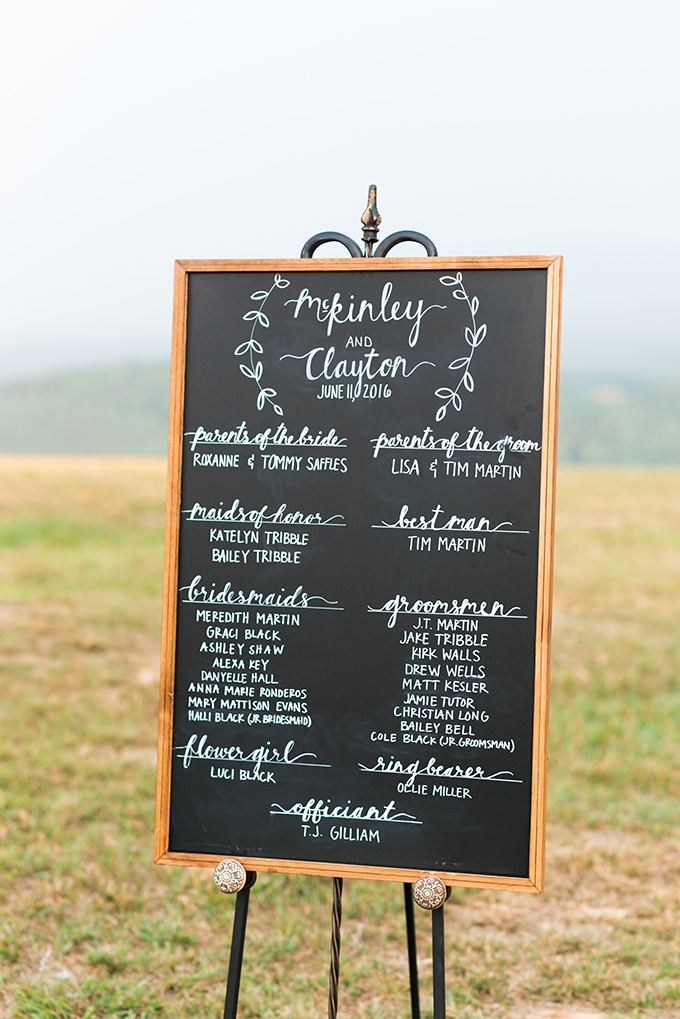 McKinley
AND
Clayton
JUNE 11, 2016
parents of the bride
ROXANNE & TOMMY SAFFLES
parents of the groom
LISA & TIM MARTIN
maids of honor
KATELYN TRIBBLE
BAILEY TRIBBLE
best man
TIM MARTIN
bridesmaids
MEREDITH MARTIN
GRACI BLACK
ASHLEY SHAW
ALEXA KEY
DANYELLE HALL
ANNA MARIE RONDEROS
MARY MATTISON EVANS
HALLI BLACK (JR. BRIDESMAID)
groomsmen
J.T. MARTIN
JAKE TRIBBLE
KIRK WALLS
DREW WELLS
MATT KESLER
JAMIE TUTOR
CHRISTIAN LONG
BAILEY BELL
COLE BLACK (JR. GROOMSMAN)
flower girl
LUCI BLACK
ring bearer
OLLIE MILLER
officiant
T.J. GILLIAM